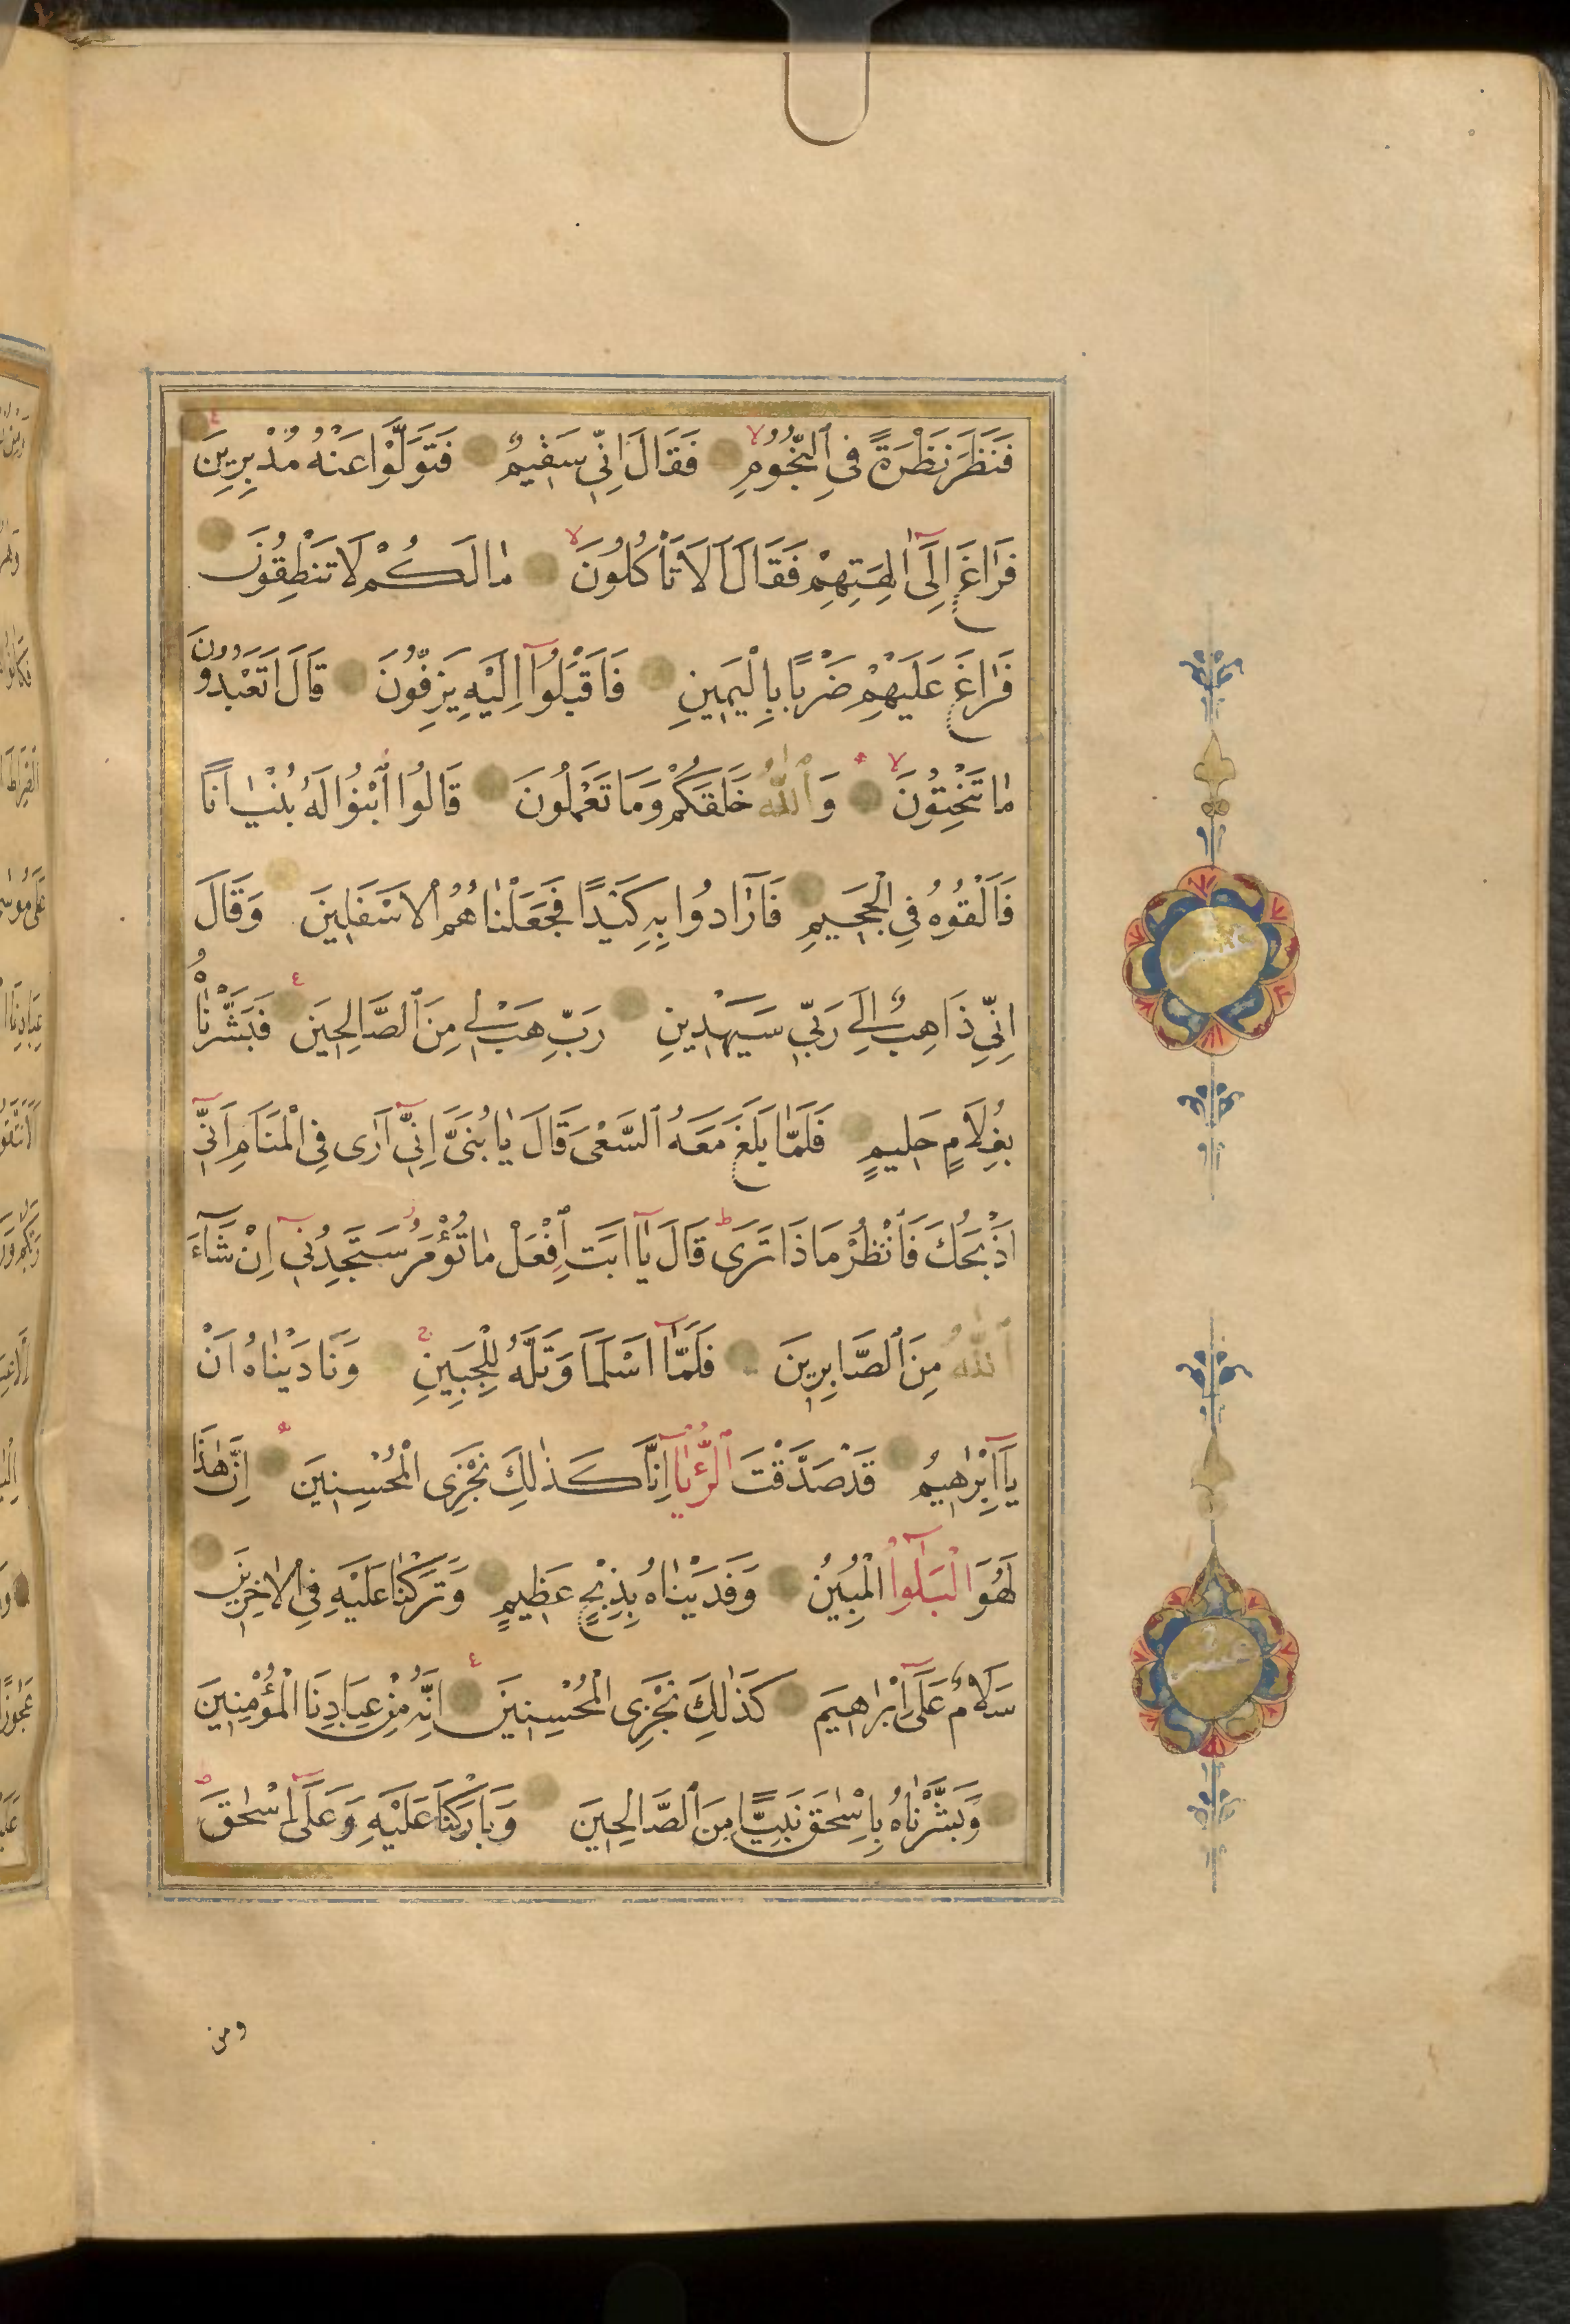 فَنَظَرَ نَظْرَةً فِي ٱلنُّجُومِ فَقَالَ اِنّٖي سَقٖيمٌ فَتَوَلَّوْا عَنْهُ مُدْبِرٖينَ
فَرَاغَ اِلٰٓى اٰلِهَتِهِمْ فَقَالَ اَلَا تَأْكُلُونَ مَا لَكُمْ لَا تَنْطِقُونَ
فَرَاغَ عَلَيْهِمْ ضَرْبًا بِالْيَمٖينِ فَاَقْبَلُٓوا اِلَيْهِ يَزِفُّونَ قَالَ اَتَعْبُدُونَ
مَا تَنْحِتُونَ وَٱللّٰهُ خَلَقَكُمْ وَمَا تَعْمَلُونَ قَالُوا ٱبْنُوا لَهُ بُنْيَانًا
فَاَلْقُوهُ فِي الْجَحٖيمِ فَاَرَادُوا بِهٖ كَيْدًا فَجَعَلْنَاهُمُ الْاَسْفَلٖينَ وَقَالَ
اِنّٖي ذَاهِبٌ اِلٰى رَبّٖي سَيَهْدٖينِ رَبِّ هَبْ لٖي مِنَ ٱلصَّالِحٖينَ فَبَشَّرْنَاهُ
بِغُلَامٍ حَلٖيمٍ فَلَمَّا بَلَغَ مَعَهُ ٱلسَّعْيَ قَالَ يَا بُنَيَّ اِنّٖٓي اَرٰى فِي الْمَنَامِ اَنّٖٓي
اَذْبَحُكَ فَٱنْظُرْ مَاذَا تَرٰى قَالَ يَٓا اَبَتِ ٱفْعَلْ مَا تُؤْمَرُ سَتَجِدُنٖٓي اِنْ شَٓاءَ
ٱللّٰهُ مِنَ ٱلصَّابِرٖينَ فَلَمَّٓا اَسْلَمَا وَتَلَّهُ لِلْجَبٖينِ وَنَادَيْنَاهُ اَنْ
يَٓا اِبْرٰهٖيمُ قَدْ صَدَّقْتَ ٱلرُّءْيَا اِنَّا كَذٰلِكَ نَجْزِي الْمُحْسِنٖينَ اِنَّ هٰذَا
لَهُوَ الْبَلٰٓؤُا الْمُبٖينُ وَفَدَيْنَاهُ بِذِبْحٍ عَظٖيمٍ وَتَرَكْنَا عَلَيْهِ فِي الْاٰخِرٖينَ
سَلَامٌ عَلٰٓى اِبْرٰهٖيمَ كَذٰلِكَ نَجْزِي الْمُحْسِنٖينَ اِنَّهُ مِنْ عِبَادِنَا الْمُؤْمِنٖينَ
وَبَشَّرْنَاهُ بِاِسْحٰقَ نَبِيًّا مِنَ ٱلصَّالِحٖينَ وَبَارَكْنَا عَلَيْهِ وَعَلٰٓى اِسْحٰقَ
ومن
عشر
عشر